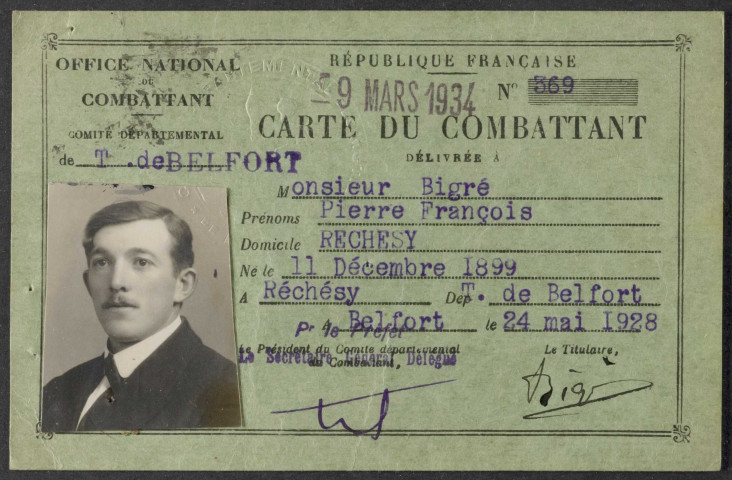 OFFICE NATIONAL
DU
COMBATTANT
COMITÉ DÉPARTEMENTAL
de T. de BELFORT
RÉPUBLIQUE FRANÇAISE
-9 MARS 1934 N° 369
CARTE DU COMBATTANT
DÉLIVRÉE À
Monsieur Bigré
Prénoms Pierre François
Domicile RECHESY
Né le 11 Décembre 1899
A Réchésy Dép T. de Belfort
A Belfort le 24 mai 1928
Pr le Préfet
Le Président du Comité départemental
du Combattant,
Le Secrétaire Général Délégué
Le Titulaire,
Bigré